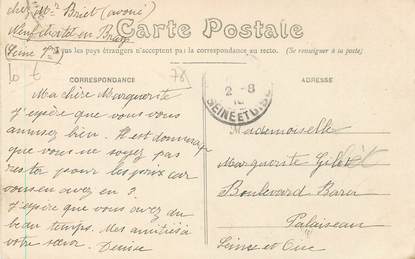 chez Mr Briet (avoué)
Neufchatel en Bray
(Seine Ire)
Carte Postale
Tous les pays étrangers n'acceptent pas la correspondance au recto. (Se renseigner à la poste)
10 €
78
CORRESPONDANCE
Ma chère Marguerite
J'espère que vous vous
amusez bien. Il est dommage
que vous ne soyez pas
restée pour les prix car
vous en avez en ?
J'espère que vous avez du
beau temps. Mes amitiés à
votre sœur. Denise
2-8
SEINE ET OISE
ADRESSE
Mademoiselle
Marguerite
Boulevard Bara
Palaiseau
Seine et Oise